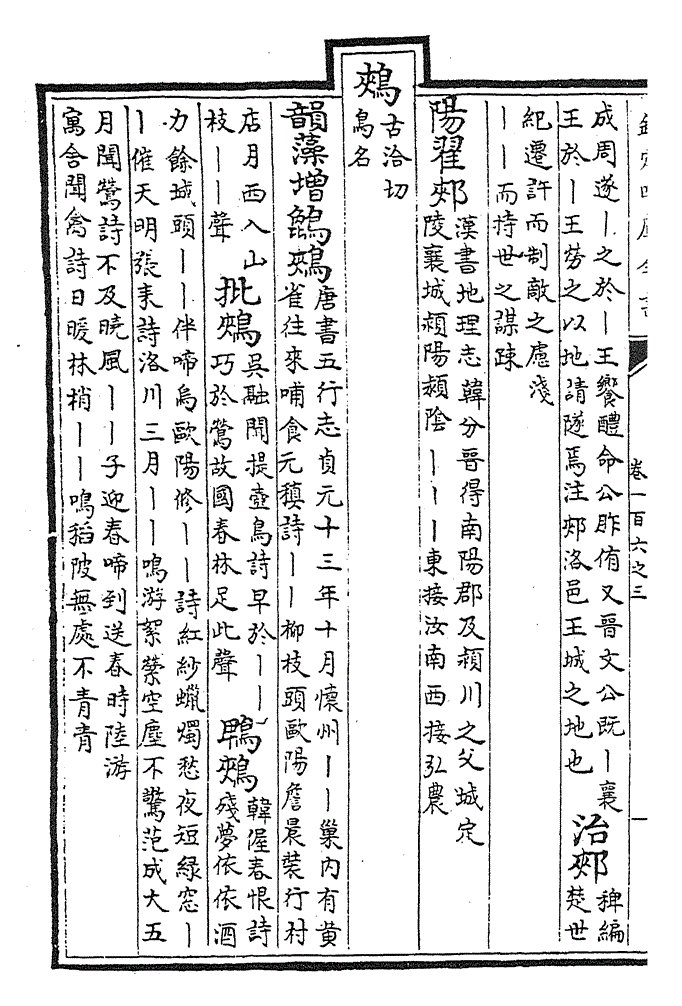 欽定四庫全書
卷一百六之三
成周遂丨之於丨王饗醴命公胙侑又晉文公既丨襄
王於丨王勞之以地請隧焉注郟洛邑王城之地也
治郟
稗編
楚世
紀遷許而制敵之慮淺
丨丨而持世之謀踈
陽翟郟
漢書地理志韓分晉得南陽郡及潁川之父城定
陵襄城潁陽潁陰丨丨丨東接汝南西接弘農
鵊
古洽切
鳥名
韻藻增鵮鵊
唐書五行志貞元十三年十月懷州丨丨巢内有黄
雀往來哺食元稹詩丨丨柳枝頭歐陽詹晨裝行村
店月西入山
枝丨丨聲
批鵊
吳融聞提壺鳥詩早於丨丨
巧於鶯故國春林足此聲
鵯鵊
韓偓春恨詩
殘夢依依酒
力餘城頭丨丨伴啼烏歐陽修丨丨詩紅紗蠟燭愁夜短緑窓丨
丨催天明張耒詩洛川三月丨丨鳴游絮縈空塵不驚范成大五
月聞鶯詩不及曉風丨丨子迎春啼到送春時陸游
寓舍聞禽詩日暖林梢丨丨鳴稻陂無處不青青